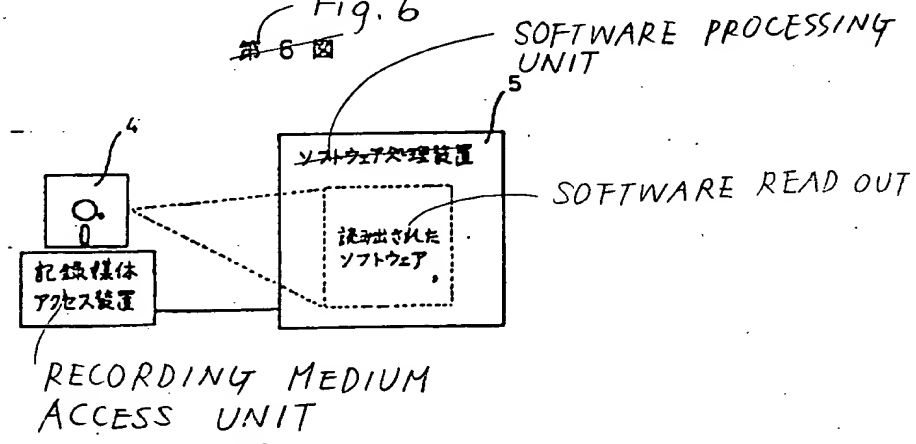 Fig. 6
第6図
SOFTWARE PROCESSING
UNIT
5
ソフトウェア処理装置
4
SOFTWARE READ OUT
読み出された
ソフトウェア
記録媒体
アクセス装置
RECORDING MEDIUM
ACCESS UNIT